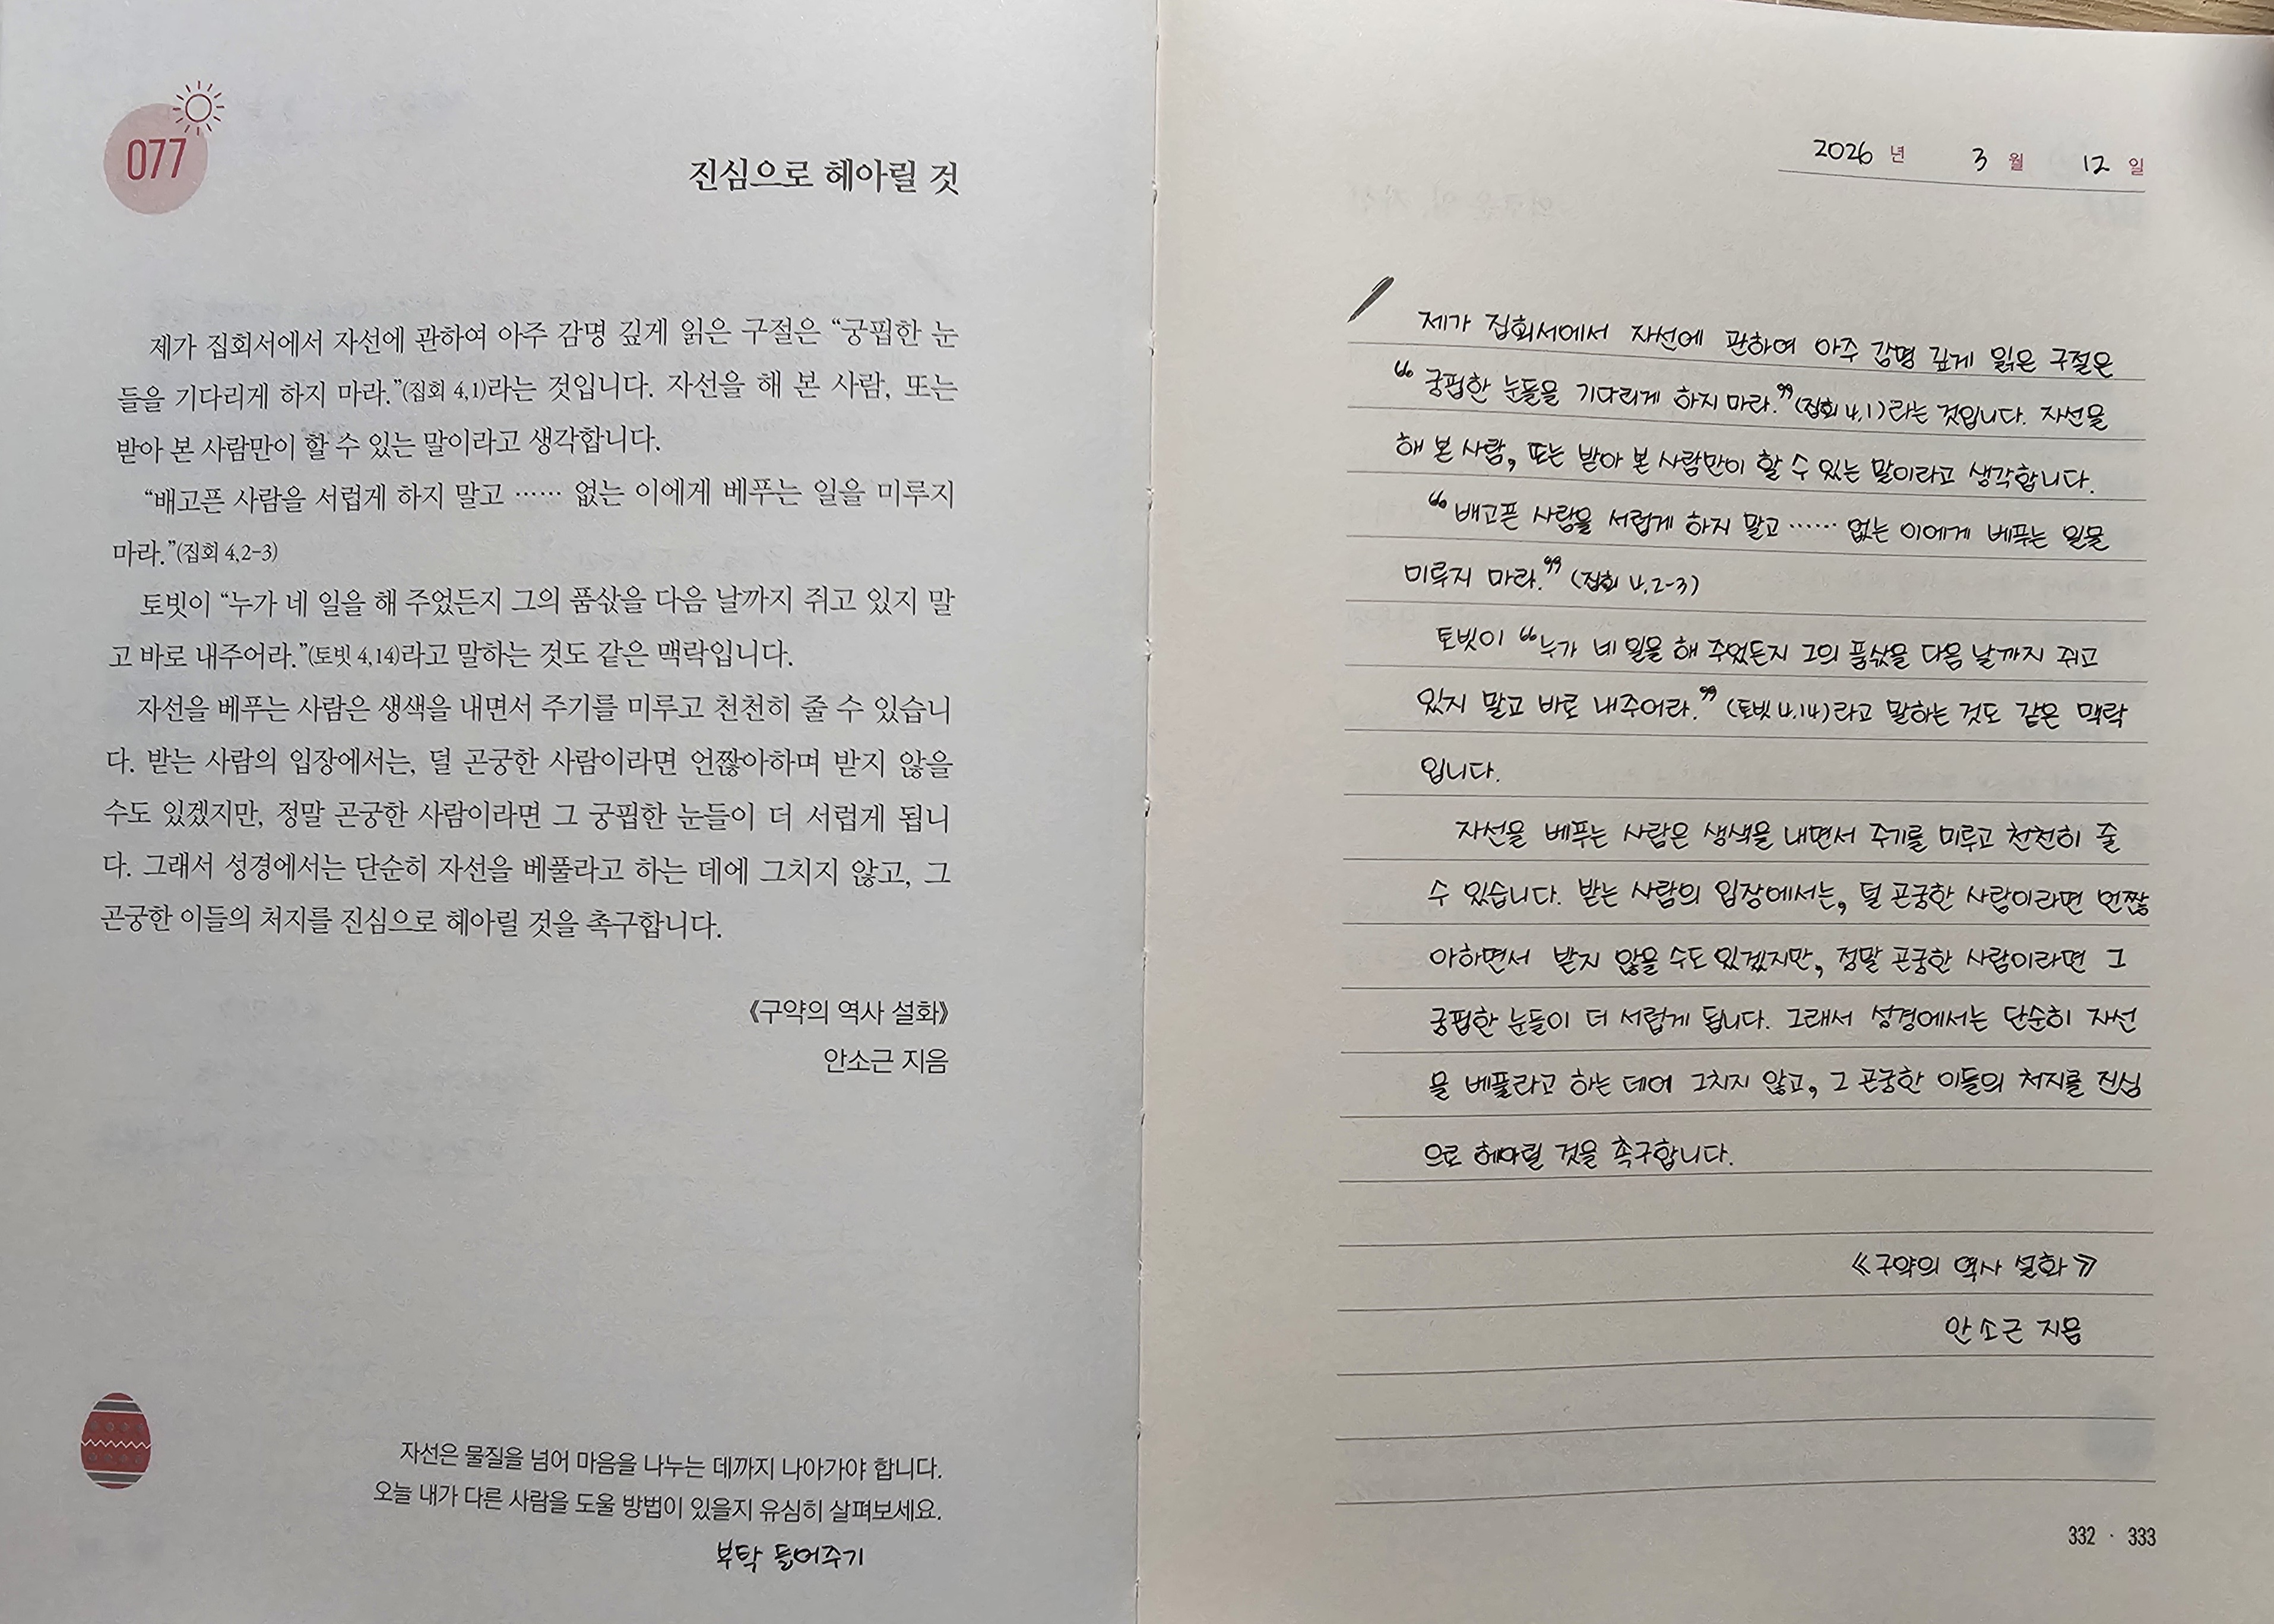 077
진심으로 헤아릴 것
제가 집회서에서 자선에 관하여 아주 감명 깊게 읽은 구절은 “궁핍한 눈
들을 기다리게 하지 마라.”(집회 4,1)라는 것입니다. 자선을 해 본 사람, 또는
받아 본 사람만이 할 수 있는 말이라고 생각합니다.
“배고픈 사람을 서럽게 하지 말고 …… 없는 이에게 베푸는 일을 미루지
마라.”(집회 4,2-3)
토빗이 “누가 네 일을 해 주었든지 그의 품삯을 다음 날까지 쥐고 있지 말
고 바로 내주어라.”(토빗 4,14)라고 말하는 것도 같은 맥락입니다.
자선을 베푸는 사람은 생색을 내면서 주기를 미루고 천천히 줄 수 있습니
다. 받는 사람의 입장에서는, 덜 곤궁한 사람이라면 언짢아하며 받지 않을
수도 있겠지만, 정말 곤궁한 사람이라면 그 궁핍한 눈들이 더 서럽게 됩니
다. 그래서 성경에서는 단순히 자선을 베풀라고 하는 데에 그치지 않고, 그
곤궁한 이들의 처지를 진심으로 헤아릴 것을 촉구합니다.
《구약의 역사 설화》
안소근 지음
자선은 물질을 넘어 마음을 나누는 데까지 나아가야 합니다.
오늘 내가 다른 사람을 도울 방법이 있을지 유심히 살펴보세요.
부탁 들어주기
2026 년 3 월 12 일
제가 집회서에서 자선에 관하여 아주 감명 깊게 읽은 구절은
“궁핍한 눈들을 기다리게 하지 마라.”(집회 4,1)라는 것입니다. 자선을
해 본 사람, 또는 받아 본 사람만이 할 수 있는 말이라고 생각합니다.
“배고픈 사람을 서럽게 하지 말고 …… 없는 이에게 베푸는 일을
미루지 마라.” (집회 4,2-3)
토빗이 “누가 네 일을 해 주었든지 그의 품삯을 다음 날까지 쥐고
있지 말고 바로 내주어라.” (토빗 4,14)라고 말하는 것도 같은 맥락
입니다.
자선을 베푸는 사람은 생색을 내면서 주기를 미루고 천천히 줄
수 있습니다. 받는 사람의 입장에서는, 덜 곤궁한 사람이라면 언짢
아하면서 받지 않을 수도 있겠지만, 정말 곤궁한 사람이라면 그
궁핍한 눈들이 더 서럽게 됩니다. 그래서 성경에서는 단순히 자선
을 베풀라고 하는 데에 그치지 않고, 그 곤궁한 이들의 처지를 진심
으로 헤아릴 것을 촉구합니다.
《구약의 역사 설화》
안소근 지음
332 · 333